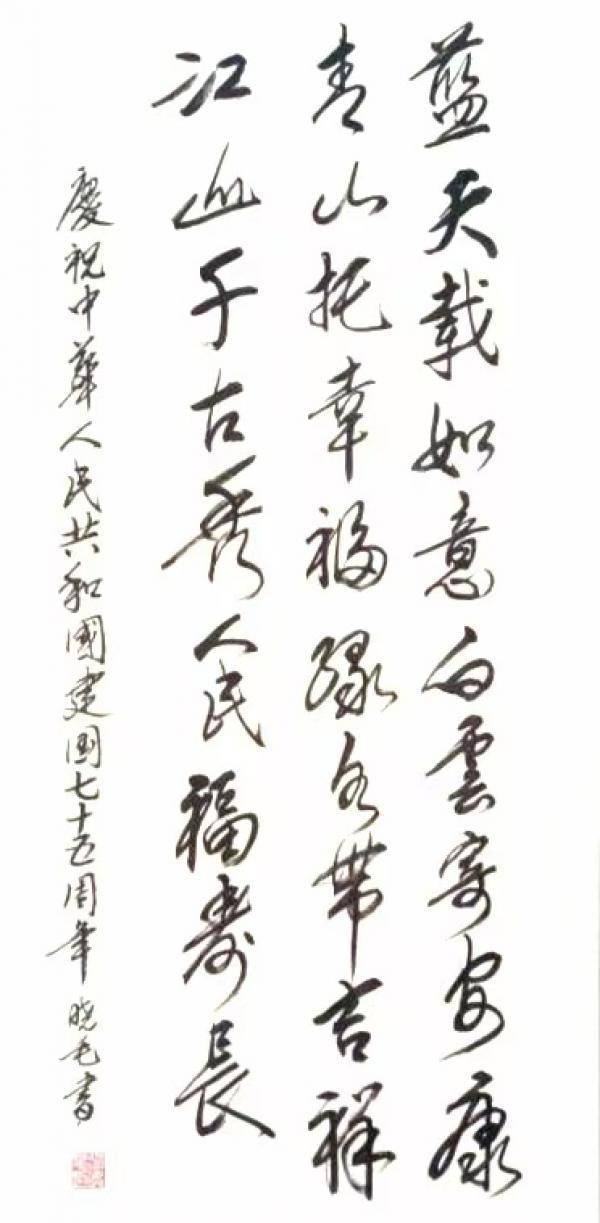 藍天載如意白雲寄安康
青山托幸福綠水帶吉祥
江山千古秀人民福壽長
慶祝中華人民共和國建国七十五周年 晓毛書